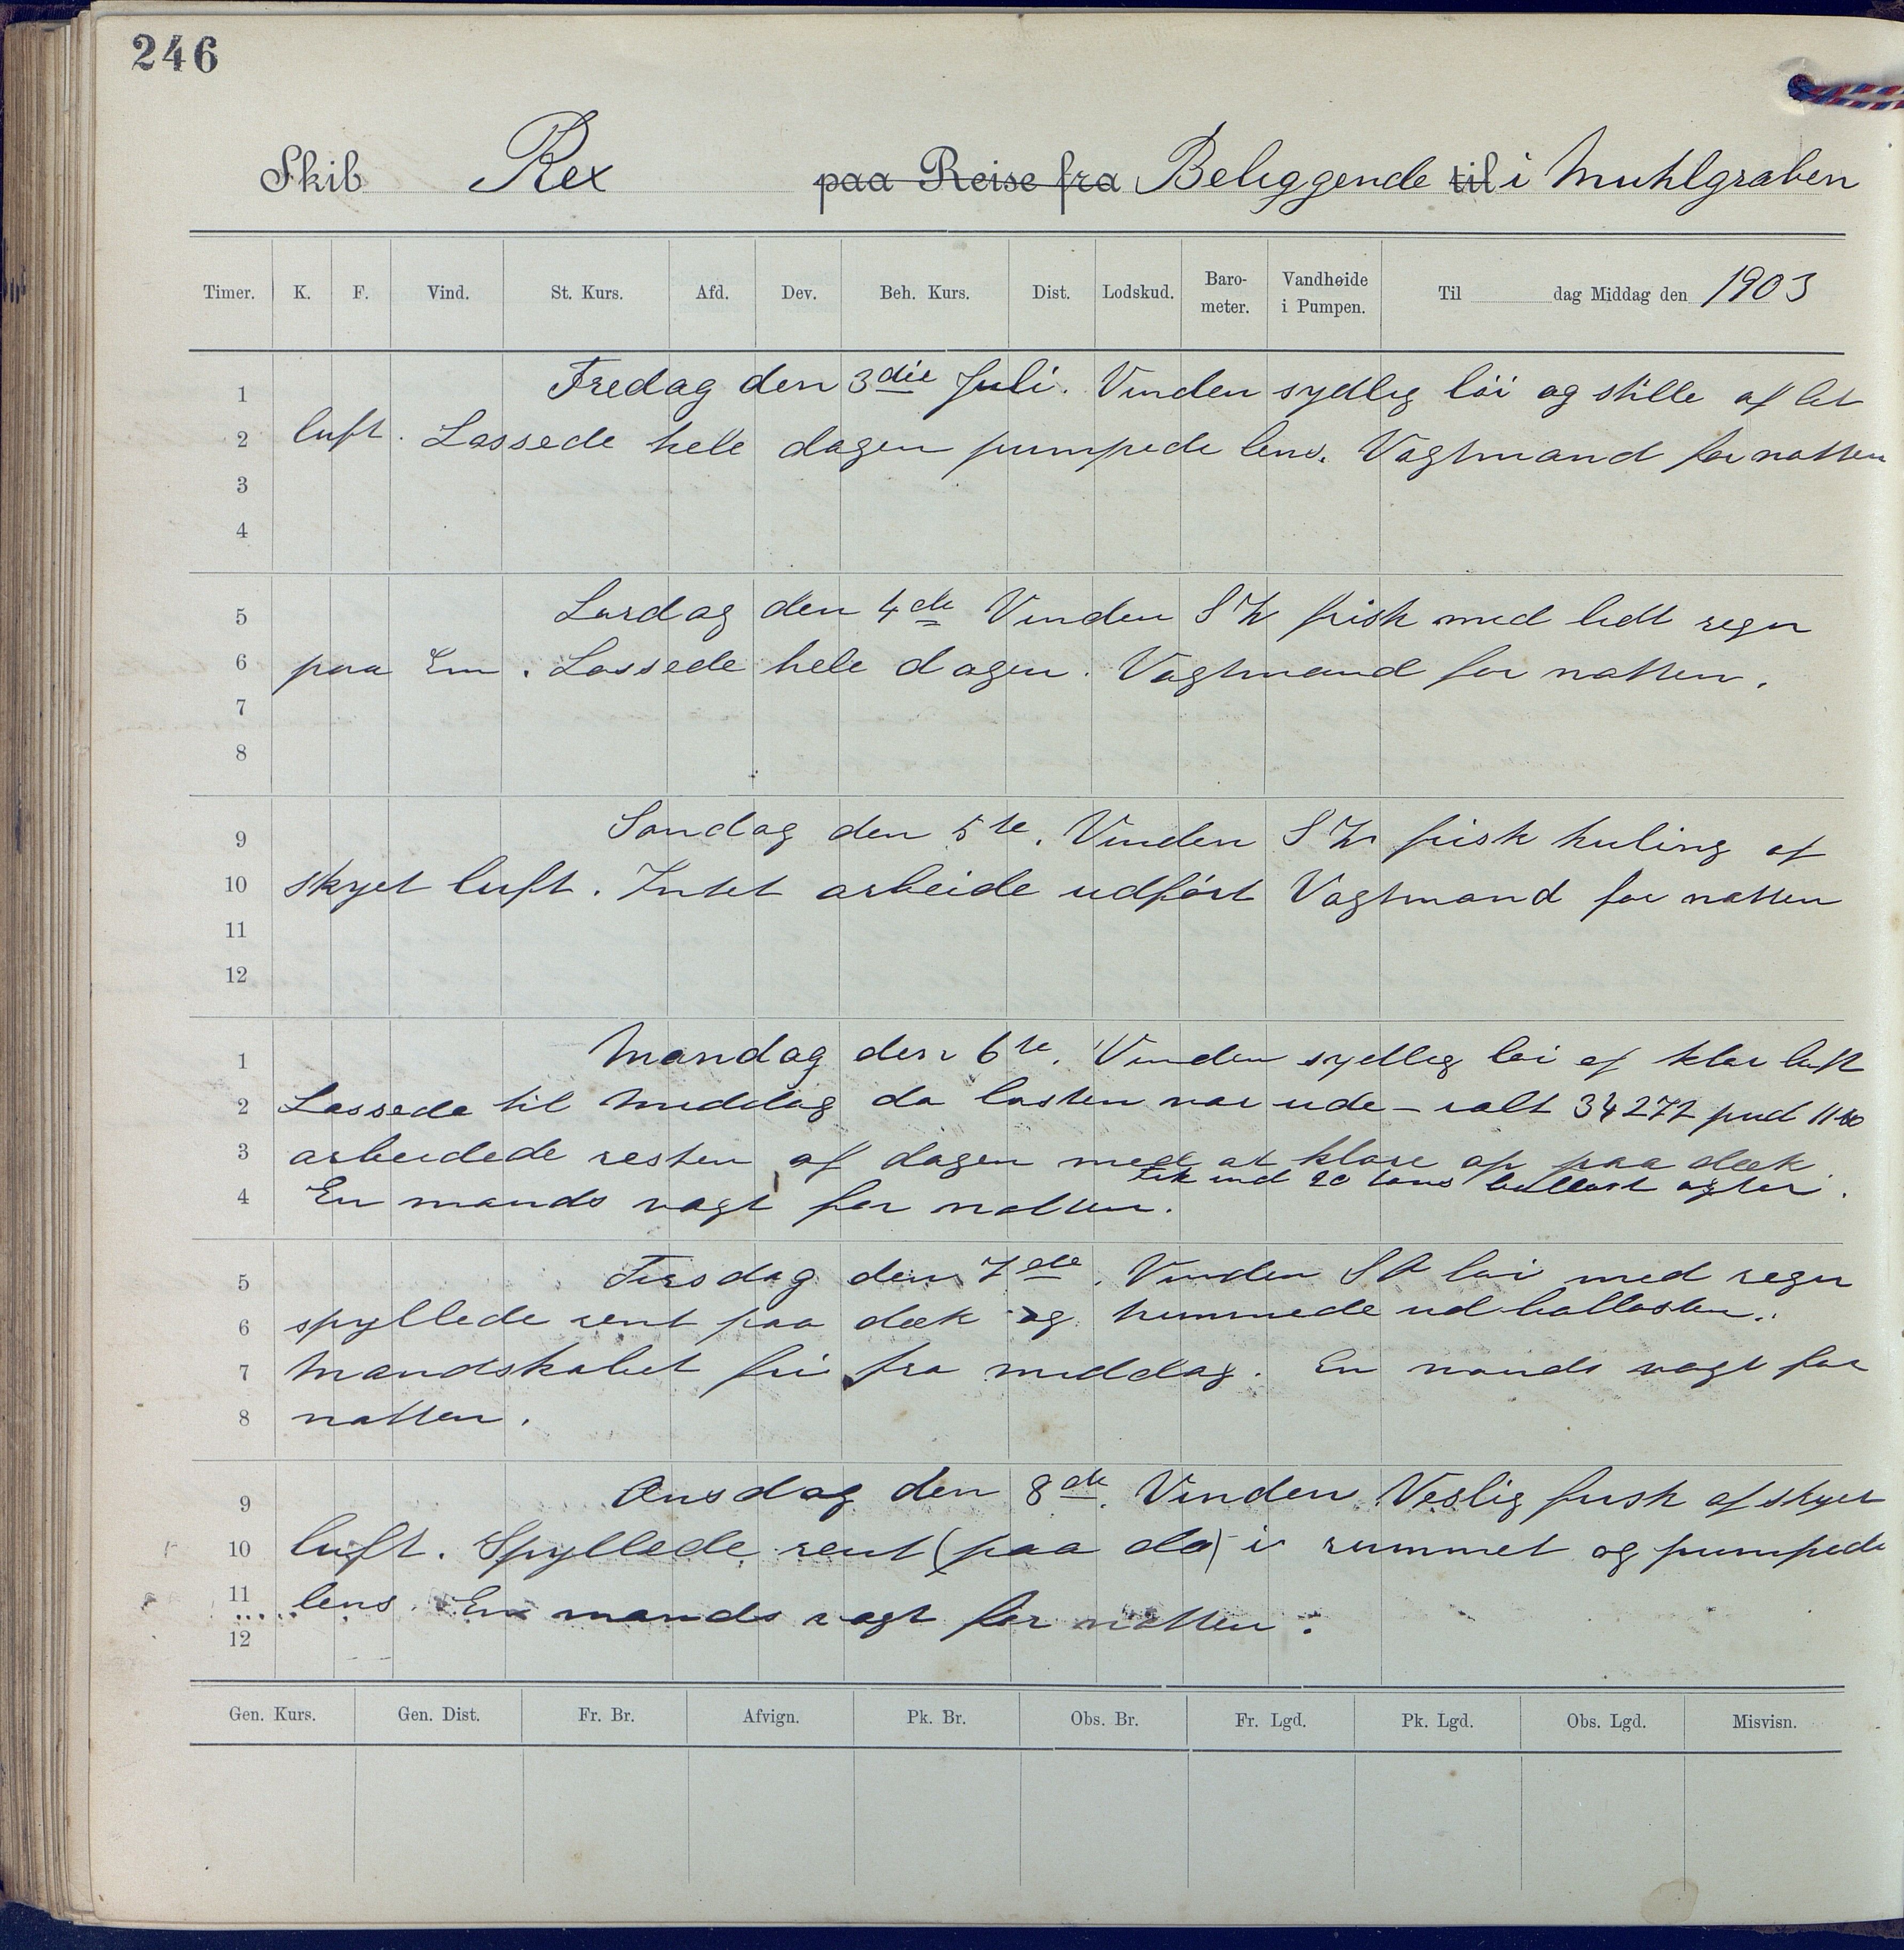 246
Skib Rex paa Reise fra Beliggende til i Muhlgraben
Timer. K. F. Vind. St. Kurs. Afd. Dev. Beh. Kurs. Dist. Lodskud. Baro-meter. Vandhøide i Pumpen. Til dag Middag den 1903
1 Fredag den 3die Juli. Vinden sydlig löi og stille af let
2 luft. Lossede hele dagen pumpede lens. Vagtmand for natten
3
4
5 Lørdag den 4de Vinden SW frisk med lidt regn
6 paa Em. Lossede hele dagen. Vagtmand for natten.
7
8
9 Søndag den 5te. Vinden SW frisk kuling af
10 skyet luft. Intet arbeide udført Vagtmand for natten
11
12
1 Mandag den 6te. Vinden sydlig løi af klar luft
2 Lossede til Middag da lasten var ude – ialt 34272 pud
3 arbeidede resten af dagen med at klare op paa dæk
Fik ind 20 tons ballast agter.
4 En mands vagt for natten.
5 Tirsdag den 7de. Vinden SO løi med regn
6 spyllede rent paa dæk og trimmede ud ballasten.
7 Mandskabet fri fra middag. En mands vagt for
8 natten.
9 Onsdag den 8de. Vinden Vestlig frisk af skyet
10 luft. Spyllede rent (paa dæ) i rummet og pumpede
11 lens. En mands vagt for natten.
12
Gen. Kurs. Gen. Dist. Fr. Br. Afvign. Pk. Br. Obs. Br. Fr. Lgd. Pk. Lgd. Obs. Lgd. Misvisn.